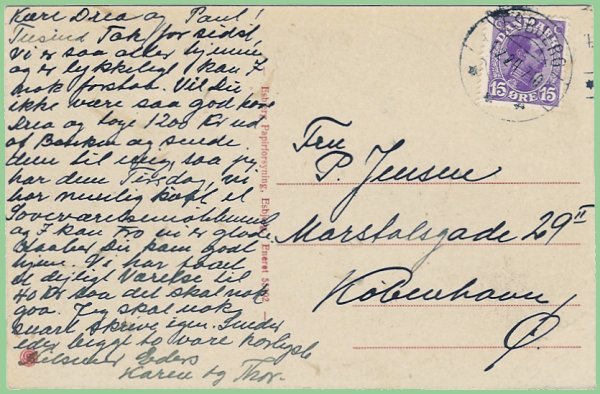 Kære Drea og Paul!
Tusind Tak for sidst
Vi er saa atter hjemme
og er lykkelige kan I
nok forstaa. Vil Du
ikke være saa god kære
Drea og tage 1200 Kr ud
af Banken og sende
dem til mig, saa jeg
har dem Tirsdag, vi
har nemlig købt et
Soveværelsesmøblement
og I kan tro vi er glade
haaber Du kom godt
hjem. Vi har faaet
et dejligt Værelse til
40 Kr saa det skal nok
gaa. Jeg skal nok
snart skrive igen.
eder begge to vare
Hilsener Eders
Karen og Thor.
Esbjerg Papirforsyning, Esbjerg. Eneret
DANMARK
15 ØRE 15
Fru
P. Jensen
Marstalsgade 29 II
København
Ø